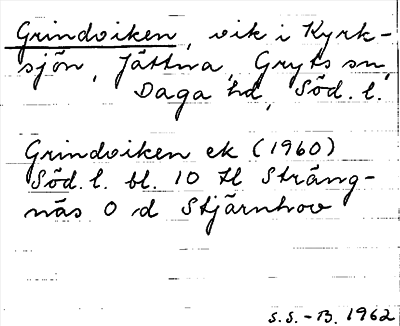 Grindviken, vik i Kyrk-
sjön, Jättna, Gryts sn,
Daga hd, Söd. l.
Grindviken ek (1960)
Söd. l. bl. 10 H Sträng-
näs O d Stjärnhov
S.S.-B. 1962